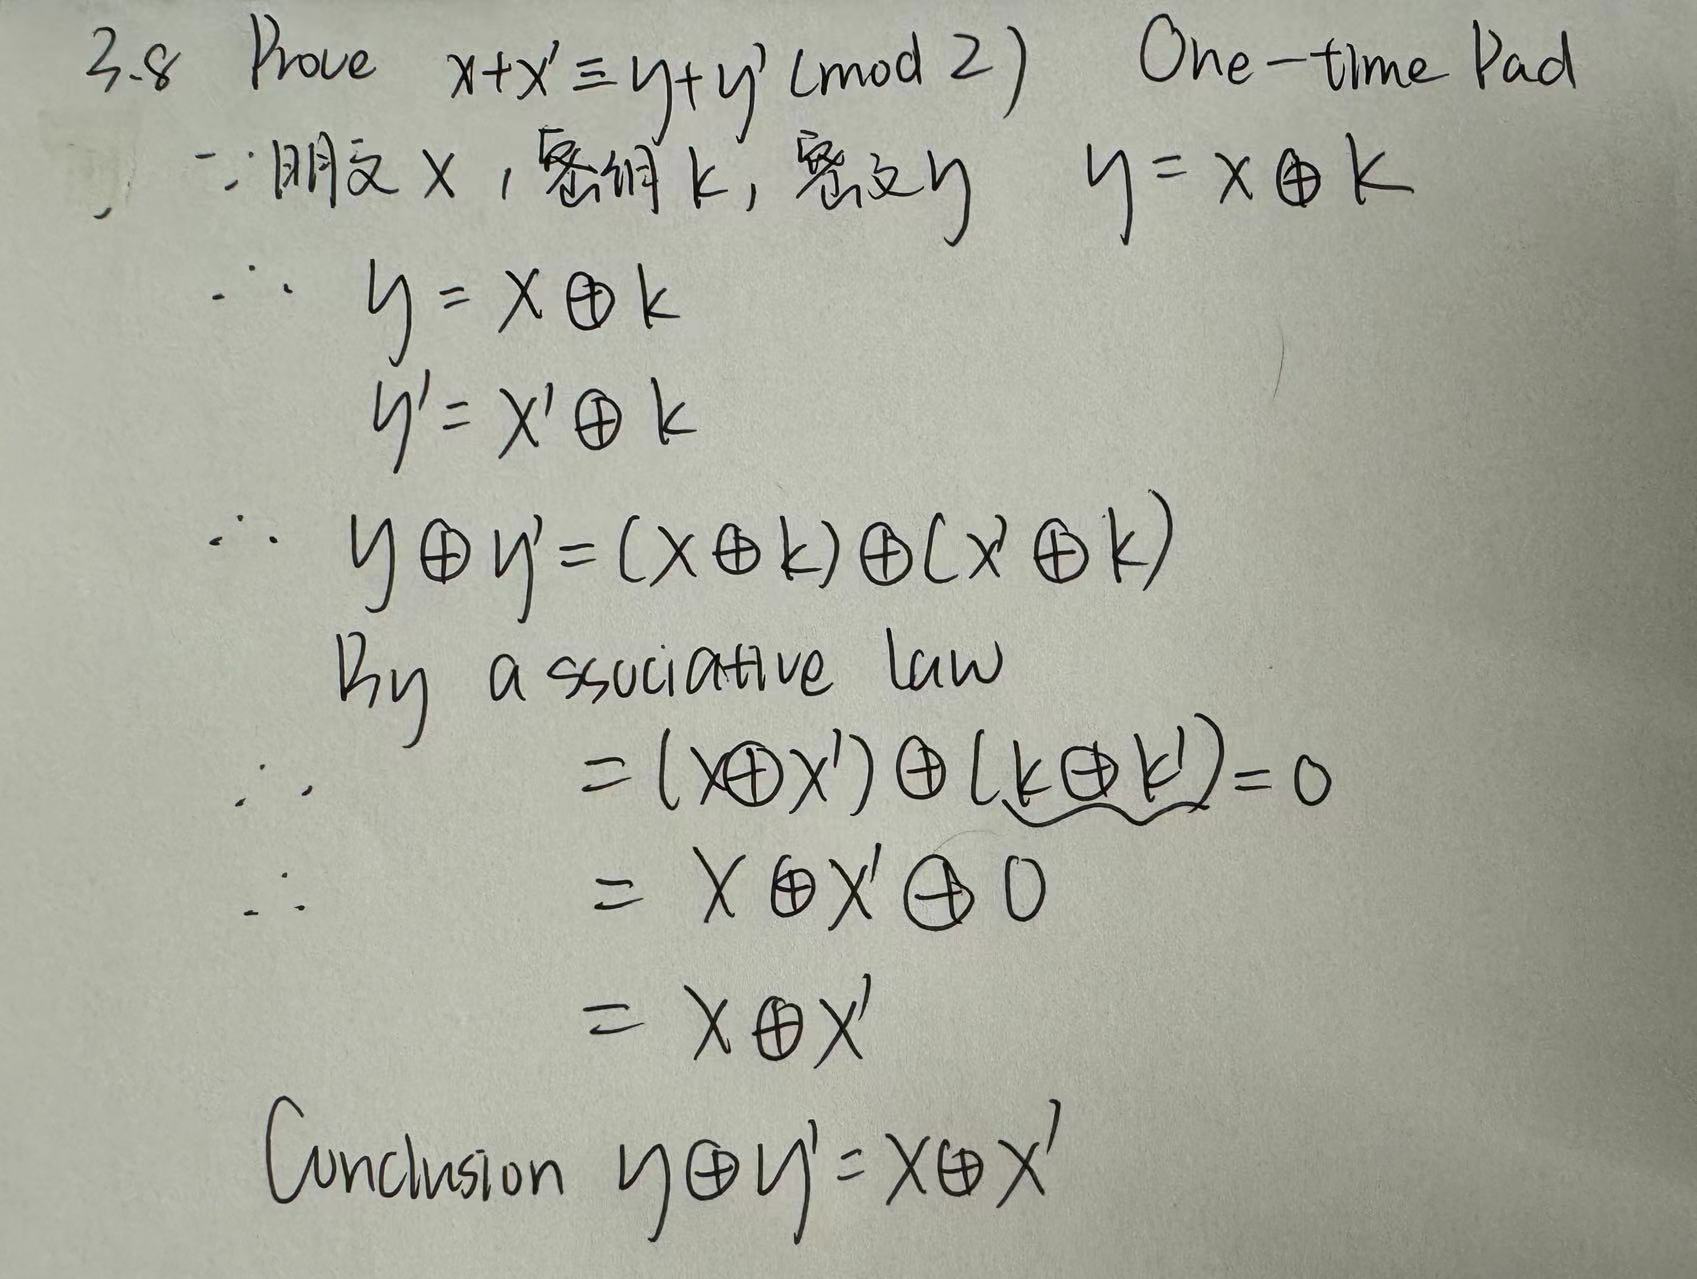 3.8 Prove x+x'≡y+y' (mod 2) One-time Pad
∵明文x,密钥k,密文y y=x⊕k
∴ y=x⊕k
y'=x'⊕k
∴ y⊕y'=(x⊕k)⊕(x'⊕k)
By associative law
∴ =(x⊕x')⊕(k⊕k')=0
∴ =x⊕x'⊕0
=x⊕x'
Conclusion y⊕y'=x⊕x'